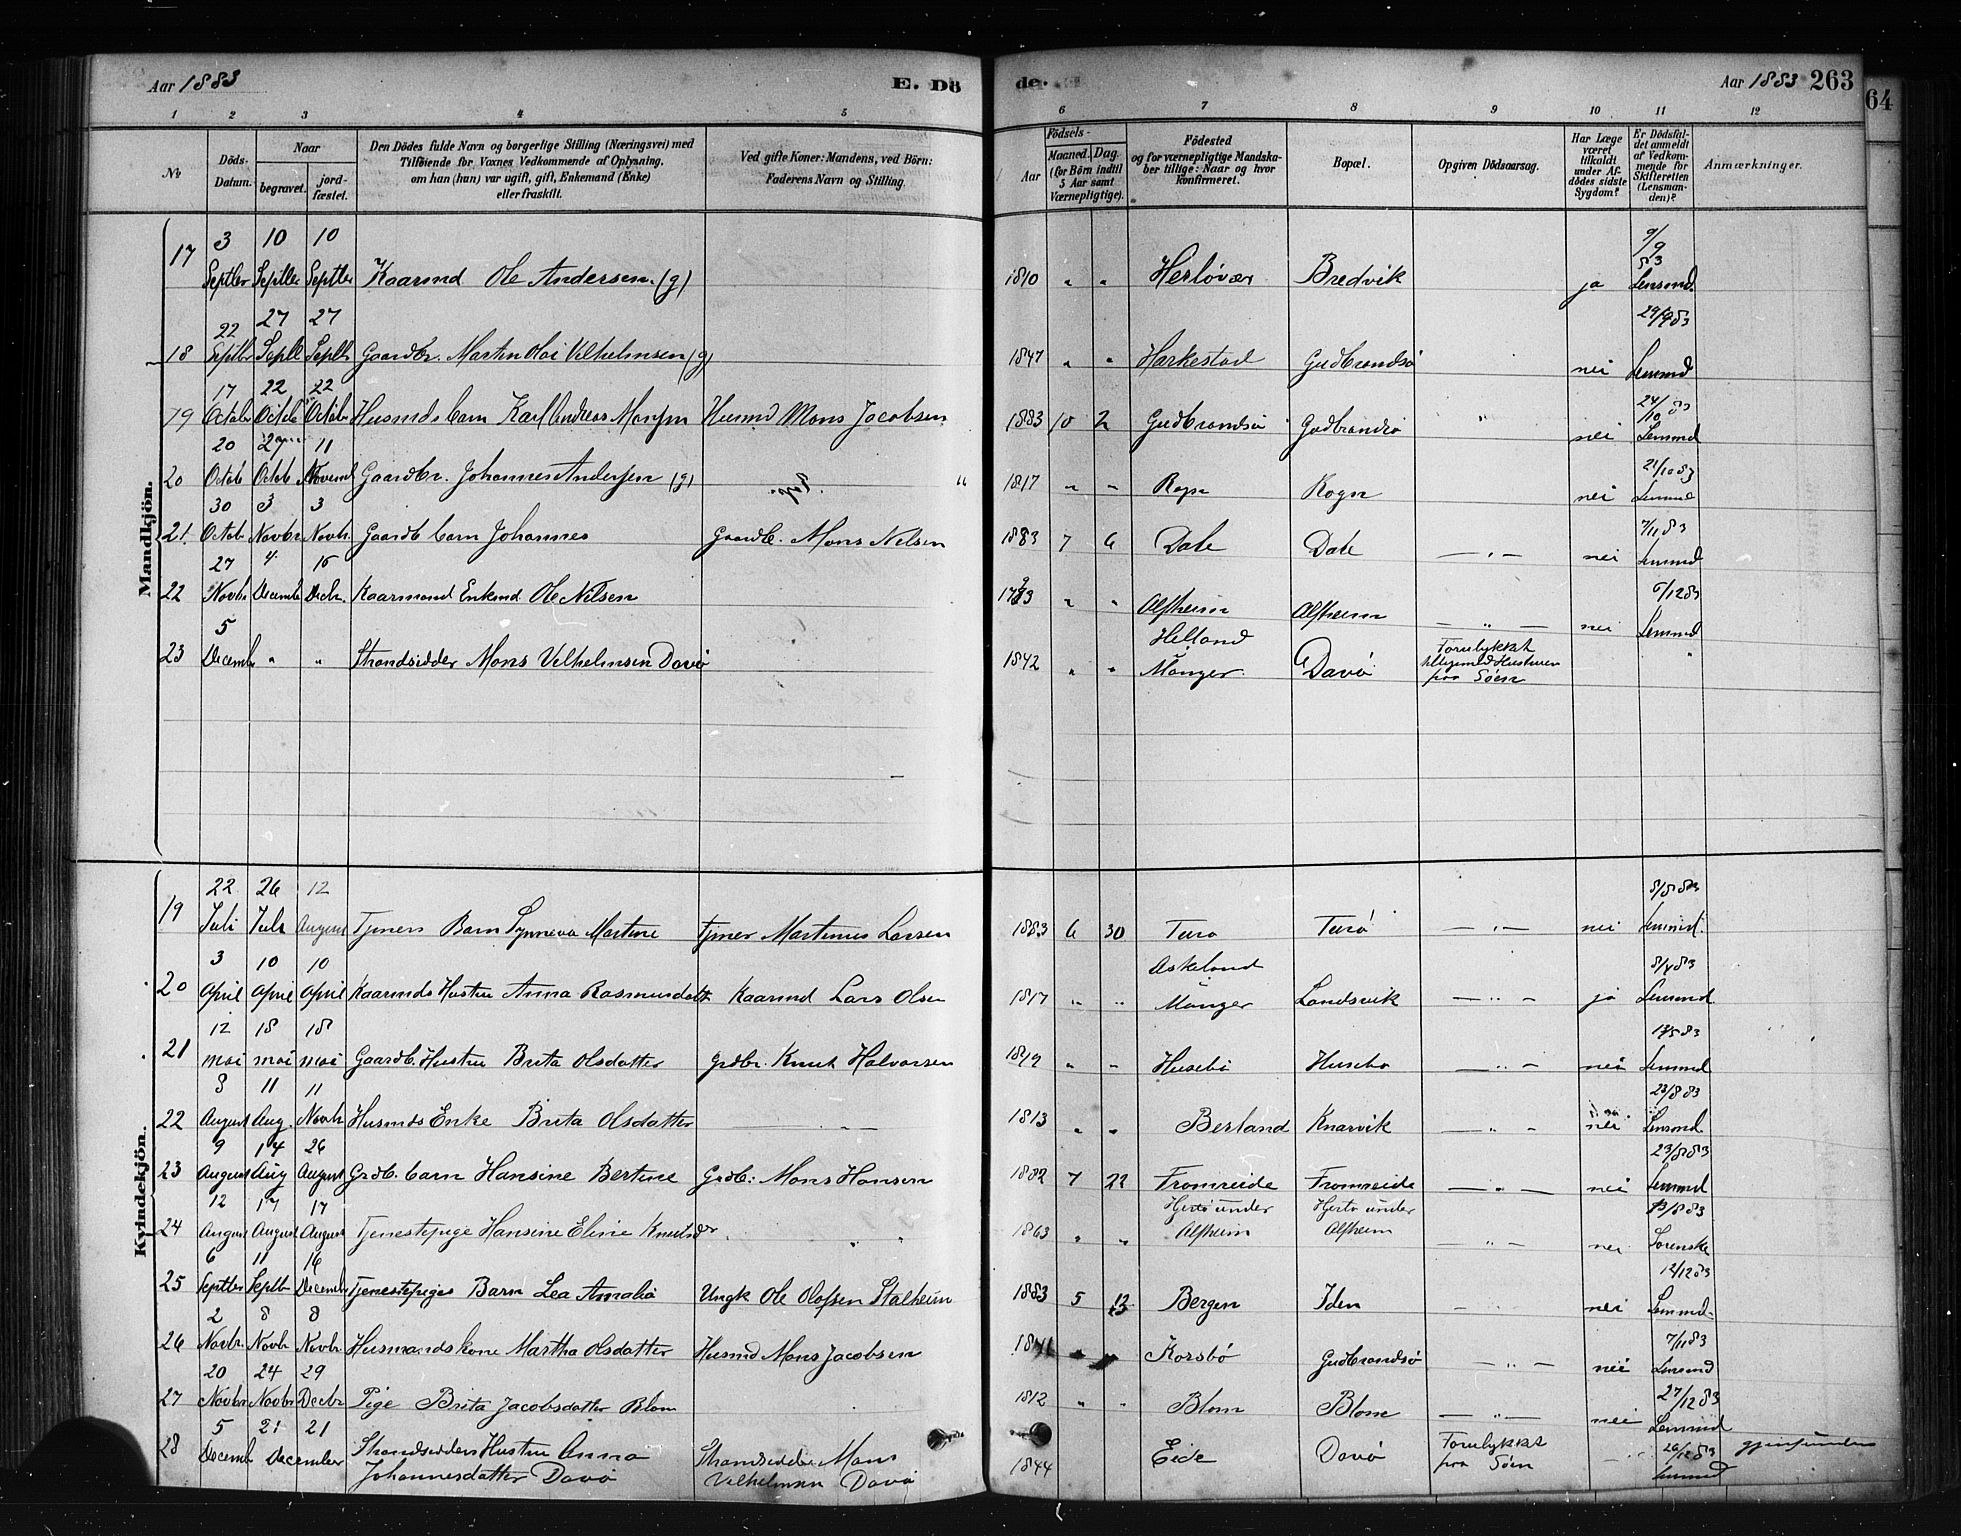 Aar 1883 E. Dö de. Aar 1883 263
64
1 2 3 4 5 6 7 8 9 10 11 12
No
Döds-Datum.
Naar
begravet.
jordfæstet.
Den Dödes fulde Navn og borgerlige Stilling (Næringsvei) med
Tilföiende for Voxnes Vedkommende af Oplysning,
om han (hun) var ugift, gift, Enkemand (Enke)
eller fraskilt.
Ved gifte Koner: Mandens, ved Börn:
Faderens Navn og Stilling.
Födsels-
Aar
Maaned. Dag.
(for Börn indtil
5 Aar samt
Værnepligtige).
Födested
og for værnepligtige Mandska-
ber tillige: Naar og hvor
konfirmeret.
Bopæl.
Opgiven Dödsaarsag.
Har Læge
været
tilkaldt
under Af-
dödes sidste
Sygdom?
Er Dödsfal-
det anmeldt
af Vedkom-
mende for
Skifteretten
(Lensman-
den)?
Anmærkninger.
Mandkjön.
3 10 10 9/9 83
17 Septbr Septbr Septbr Kaarmd Ole Andersen (g) 1810 " " Herløvær Bredvik ja Lensmd.
22 27 27
18 Septbr Septbr Septbr Gaardbr. Martin Olai Vilhelmsen (g) 1847 " " Harkestad Gudbrandsø nei Lensmd
17 22 22
19 Octobr Octob Octobr Husmds barn Karl Andreas Monsen Husmd Mons Jacobsen 1883 10 2 Gudbrandsø Gudbrandsø " nei Lensmd
20 11 21/10 83
20 Octob Octob Novemb Gaardbr. Johannes Andersen (g) " 1817 " " Rogn Rogn nei Lensmd
30 3 3 7/11 83
21. Octob Novbr Novbr. Gaardb barn Johannes Gaardb. Mons Nilsen 1883 7 6 Dale Dale — " — nei Lensmd
27 4 15 6/12 83
22 Novbr Decemb Decbr. Kaarmand Enkmd Ole Nilsen " " Alfheim Alfheim — " — nei Lensmd
5 Helland Forulykket
23 Decemb " " Strandsidder Mons Vilhelmsen Davø 1842 " " Manger Davø tilligemed Hustruen
paa Søen
Kvindekjön.
22 26 12 8/8 83
19 Juli Juli August Tjeners Barn Synneva Martine Tjener Martinus Larsen 1883 6 30 Turø Turø — " — nei Lensmd.
3 10 10 Askeland 8/4 83
20 April April April Kaarmds Hustru Anna Rasmusdatt Kaarmd Lars Olsen 1817 " " Manger Landsvik — " — ja Lensmd
12 18 18
21 mai mai mai Gaardb. Hustru Brita Olsdatter Grdbr. Knut Halvorsen " " Husebø Husebø — " — nei Lensmd
8 11 11 23/8 83
22 August Aug. Novbr Husmds Enke Brita Olsdatter — " — 1813 " " Berland Knarvik — " — nei Lensmd
9 14 26 23/8 83
23 August Aug August Grdb. barn Hansine Bertine Grdb: Mons Hansen 1882 7 22 Fromreide Fromreide — " — nei Lensmd
12 17 17 Hertø under Hertø under
24 August August August Tjenestepige Hansine Eline Knutsdr " " 1863 " " Alfheim Alfheim — " — nei
6 11 16 12/12 83
25 Septbr Septbr Decemb Tjenestepiges Barn Lea Amalia Ungk Ole Olofsen Stalheim 1883 5 Bergen Iden nei Lensmd.
2 8 8 7/11 83
26 Novbr. Novb Novbr Husmandskone Martha Olsdatter Husmd Mons Jacobsen Korsbø Gudbrandsø — " — nei Lensmd
20 24 29 27/12 83
27 Novbr Novbr Decbr Pige Brita Jacobsdatter Blom 1812 " " Blom Blom — " — nei Lensmd
5 21 21
28 Decemb December Strandsidders Hustru Anna Strandsidder Mons 1844 Eide Davø Forulykket 83 gjenfunden
Johannesdatter Davø Vilhelmsen Davø paa Søen Lensmd